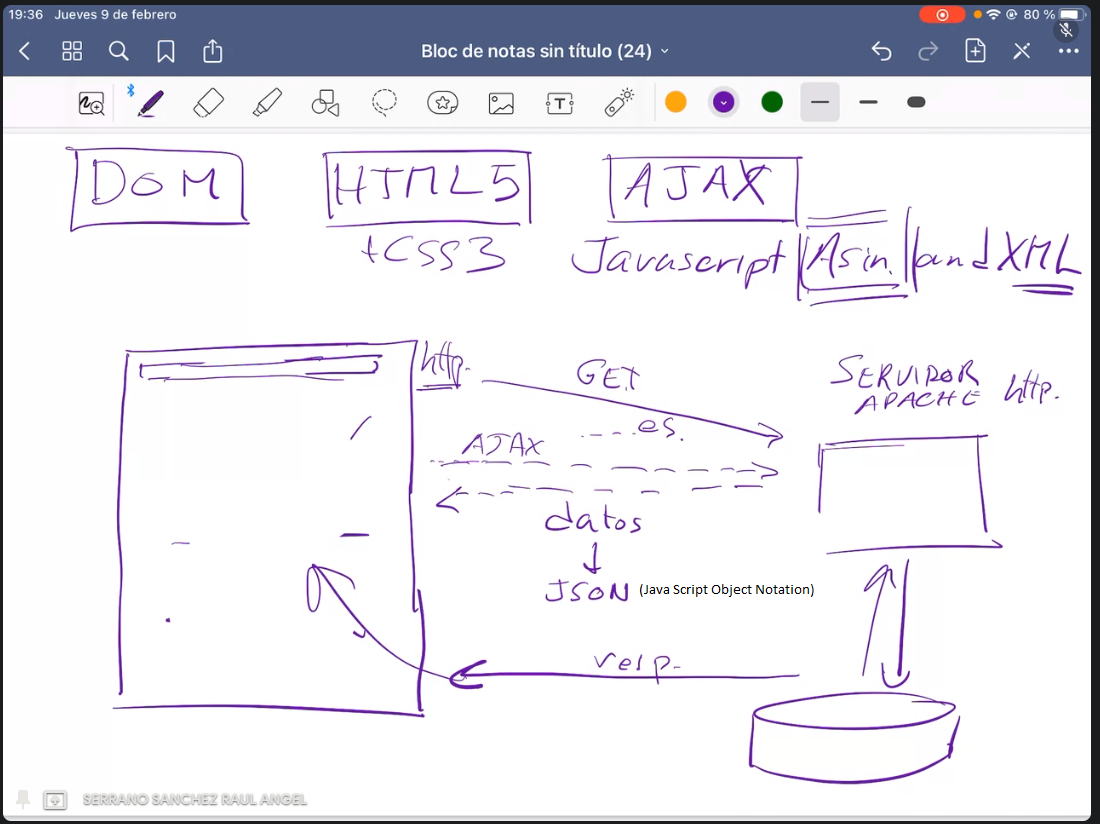 19:36 Jueves 9 de febrero
80 %
Bloc de notas sin título (24)
T
DOM
HTML5
AJAX
+CSS3
Javascript Asin. and XML
http.
GET
SERVIDOR
APACHE http.
....es.
AJAX
datos
JSON (Java Script Object Notation)
resp.
SERRANO SANCHEZ RAUL ANGEL